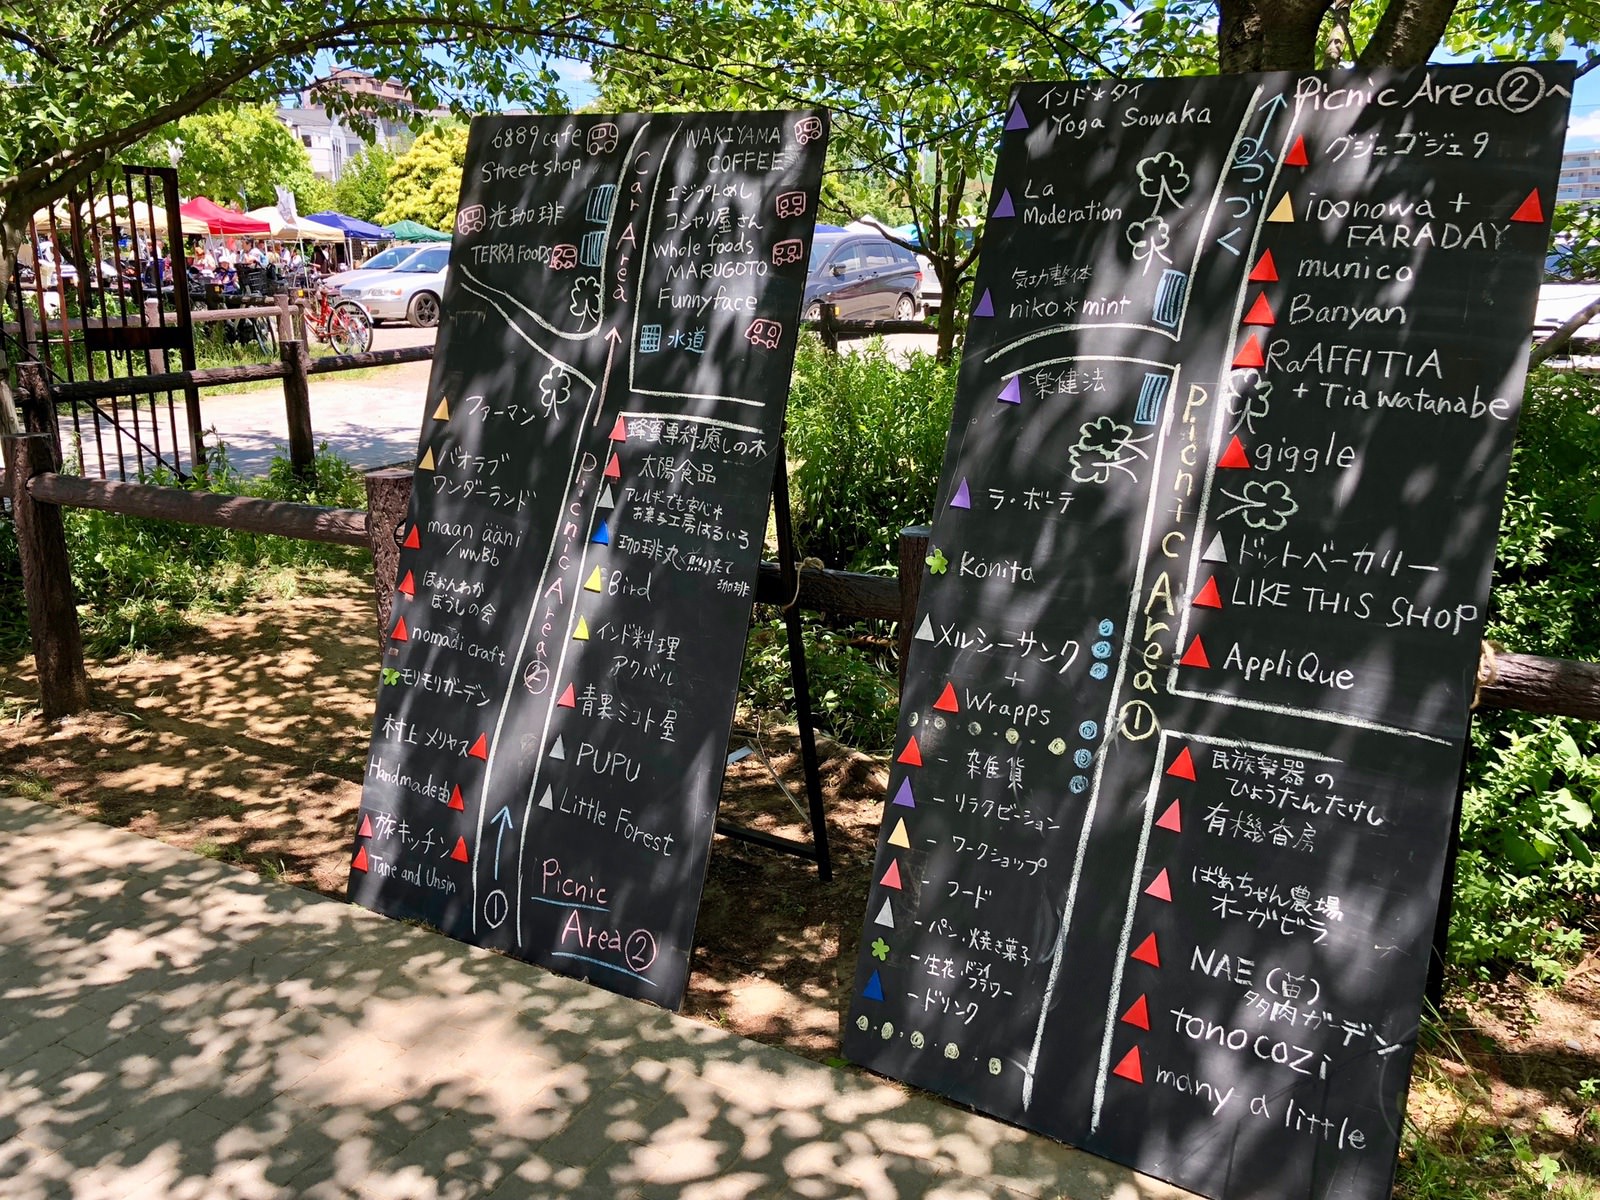 6889 cafe
Street shop
光珈琲
TERRA FOODS
Car Area
WAKIYAMA
COFFEE
エジプトめし
コシャリ屋さん
Whole foods
MARUGOTO
Funnyface
水道
ファーマン
バオラブ
ワンダーランド
maan ääni
/wwBb
ほぉんわか
ぼうしの会
nomadi craft
モリモリガーデン
村上メリヤス
Handmade由
旅キッチン
Tane and Unsin
Picnic Area②
①
蜂蜜専科 癒しの木
太陽食品
アレルギーでも安心
お菓子工房はるいろ
珈琲丸
珈琲
Bird
インド料理
アクバル
青果ミコト屋
PUPU
Little Forest
Picnic
Area②
インド*タイ
Yoga Sowaka
La
Moderation
気功整体
niko*mint
楽健法
ラ・ボーテ
Konita
メルシーサンク
+
Wrapps
- 雑貨
- リラクゼーション
- ワークショップ
- フード
- パン・焼き菓子
- 生花・ドライ
フラワー
- ドリンク
②へつづく
Picnic Area①
Picnic Area②へ
グジェゴジェ9
ioonowa +
FARADAY
munico
Banyan
RaAFFITIA
+ Tia watanabe
giggle
ドットベーカリー
LIKE THIS SHOP
AppliQue
民族楽器の
ひょうたんたけし
有機香房
ばあちゃん農場
オーガビラ
NAE(苗)
多肉ガーデン
tono cozi
many a little